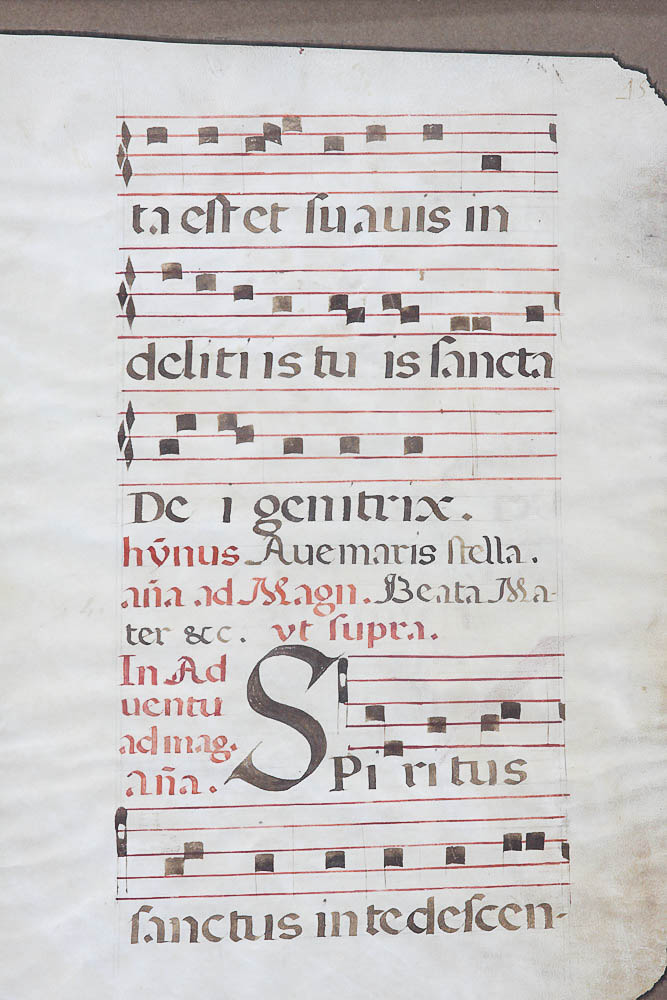 15
ta est et suauis in
deliti is tu is sancta
De i genitrix.
hỹnus Aue maris stella.
aña ad Magn. Beata Ma-
ter &c. vt supra.
In Ad
uentu
ad mag.
aña.
Spiritus
sanctus in te descen-